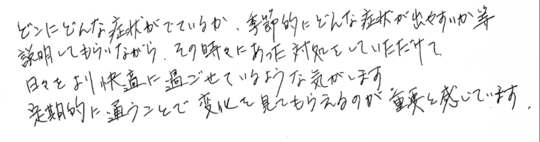 どこにどんな症状がでているか、季節的にどんな症状が出やすいか等
説明してもらいながら、その時々にあった対処をしていただけて
日々をより快適に過ごせているような気がします
定期的に通うことで変化を見てもらえるのが重要と感じています。